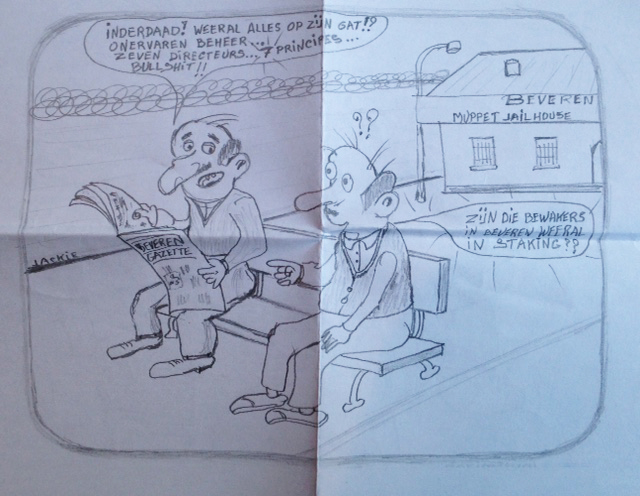 INDERDAAD! WEERAL ALLES OP ZIJN GAT!?
ONERVAREN BEHEER...!
ZEVEN DIRECTEURS... 7 PRINCIPES...
BULLSHIT!!
BEVEREN
MUPPET JAILHOUSE
??
ZIJN DIE BEWAKERS
IN BEVEREN WEERAL
IN STAKING??
JACKIE
BEVEREN
GAZETTE